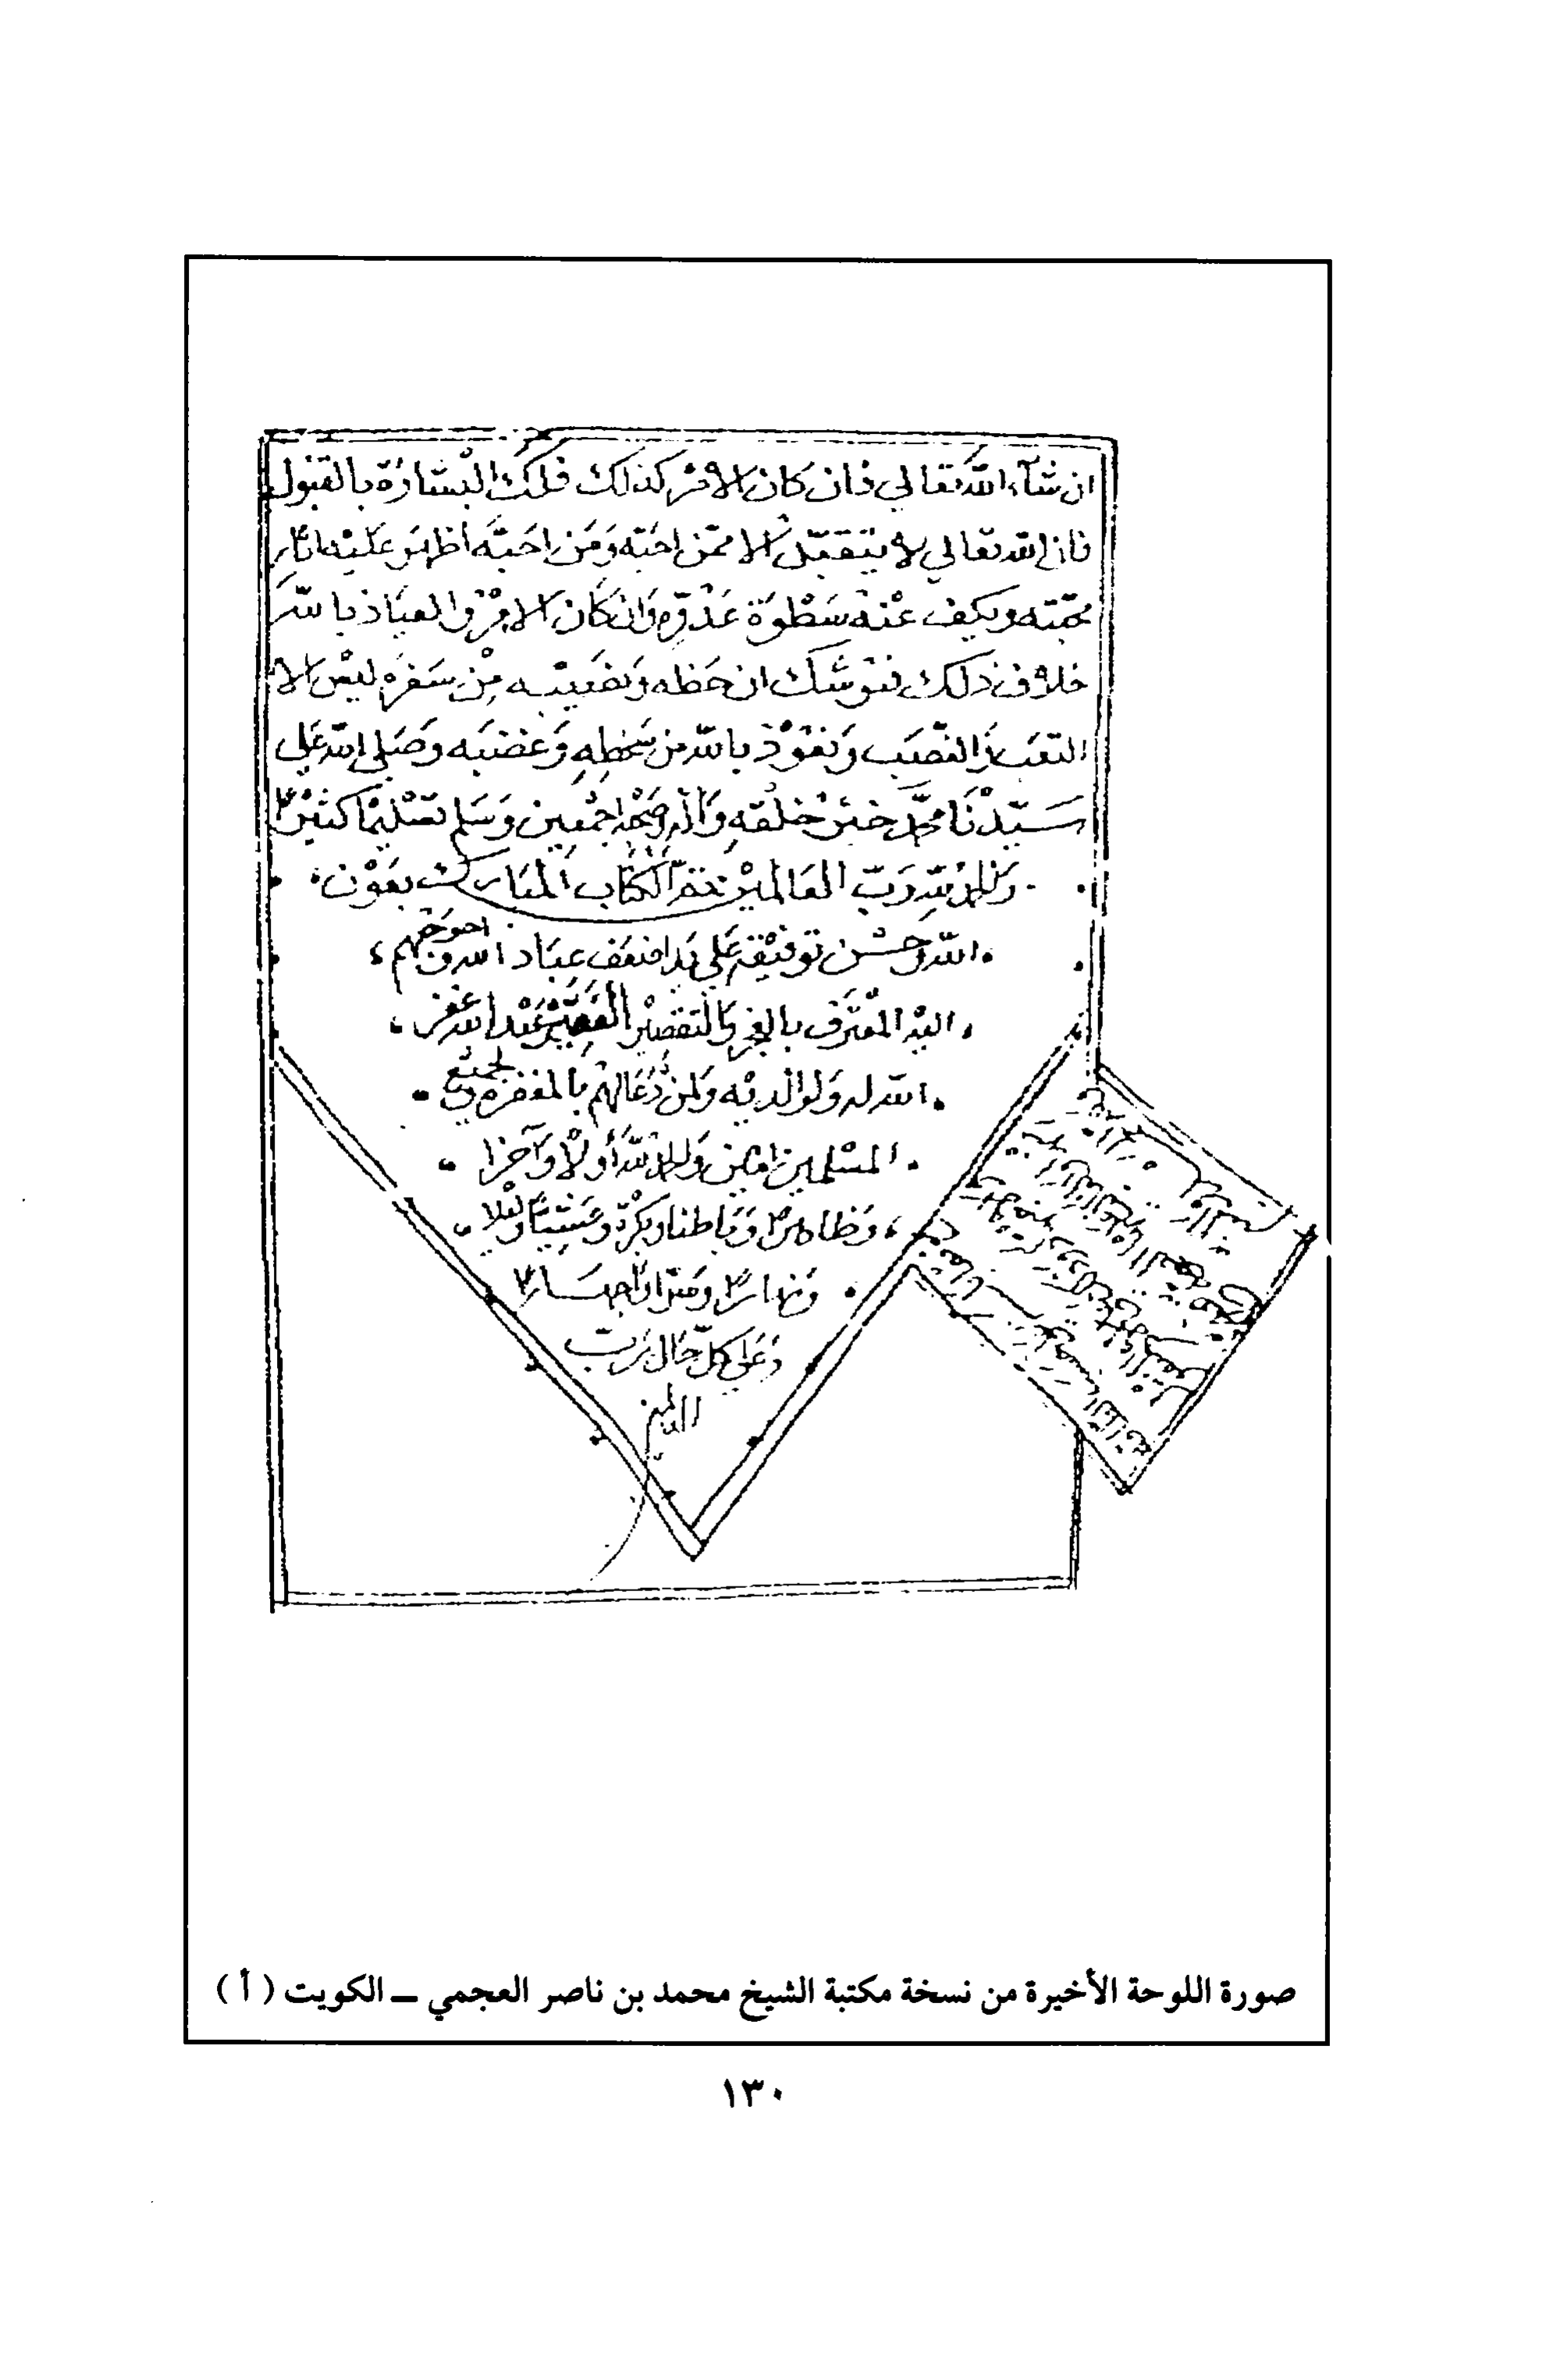 ان شآء الله تعالي فان كان الامر كذلك فلك البشارة بالقبول
فان الله تعالي لا يتقبّل الا ممّن احبّه ومن احبّه اظهر عليه اثار
محبّته ويكف عنه سطوة عدوّه وان كان الامر والعياذ بالله
خلاف ذلك فنوشك ان حظه ونصيبه من سفره ليس الا
التعب والنصب ونعوذ بالله من سخطه وغضبه وصلي الله علي
سيّدنا محمّد خير خلقه واله وصحبه اجمعين وسلم تسليما كثيرا
والحمد لله ربّ العالمين تمّ الكتاب المبارك بعون
الله وحسن توفيقه علي يد اضعف عباد الله واحوجهم
اليه المعترف بالعجز والتقصير الفقير عبد الله غفر
الله له ولوالديه ولمن دعا لهم بالمغفرة ولجميع
المسلمين امين ولله الحمد أولا وآخرا
وظاهرا وباطنا وبكرة وعشيّا وليلا
ونهارا وسرّا وجهارا
وعلي كلّ حال ربّ
العالمين
صورة اللوحة الأخيرة من نسخة مكتبة الشيخ محمد بن ناصر العجمي ــ الكويت ( أ )
١٣٠